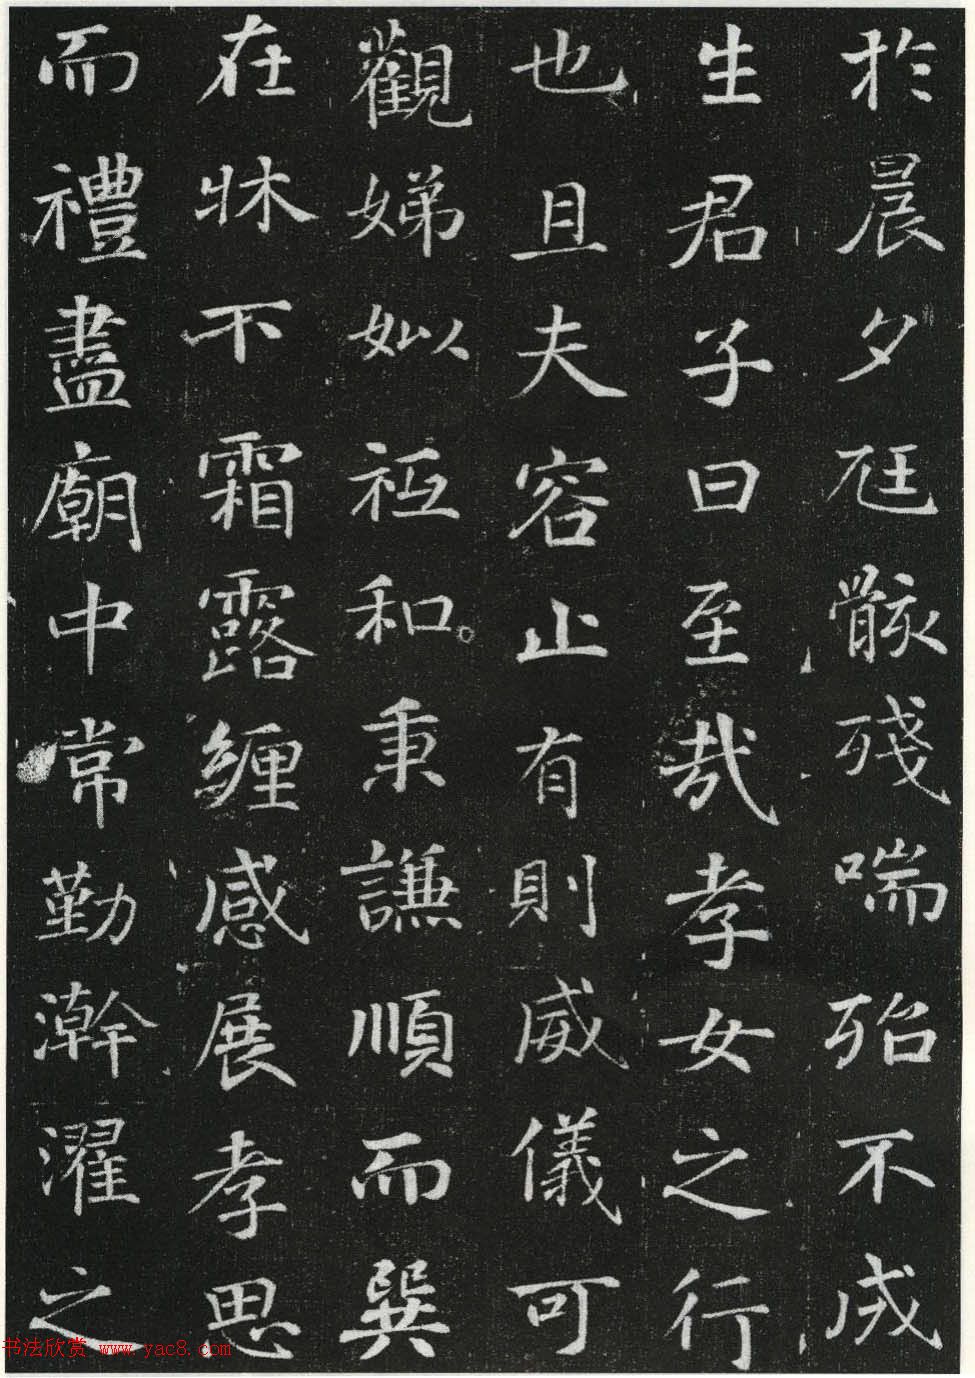 於晨夕尫骸殘喘殆不成
生君子曰至哉孝女之行
也且夫容止有則威儀可
觀娣姒祗和秉謙順而巽
在牀不霜露纏感展孝思
而禮盡廟中常勤澣濯之
书法欣赏 www.yac8.com